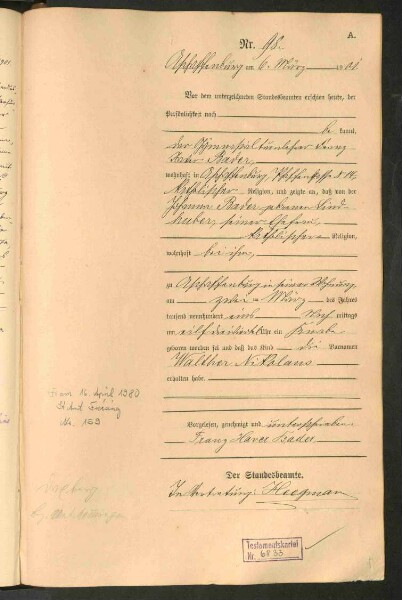 A.
Nr. 98.
Aschaffenburg am 6. März 1901
Vor dem unterzeichneten Standesbeamten erschien heute, der
Persönlichkeit nach
be kannt,
der Gymnasialturnlehrer Franz
Xaver Bader,
wohnhaft in Aschaffenburg,
katholischer Religion, und zeigte an, daß von der
Bader, geborenen Lind-
huber, seiner Ehefrau,
katholischer Religion,
wohnhaft bei ihm,
zu Aschaffenburg in seiner Wohnung
am zwei März des Jahres
tausend neunhundert eins Nachmittags
um Uhr ein Knabe
geboren worden sei und daß das Kind die Vornamen
Walther Nikolaus
erhalten habe.
Vorgelesen, genehmigt und unterschrieben
Franz Xaver Bader
Der Standesbeamte.
In Vertretung: Hegman
16. April 1980
Nr. 159
Testamentskartei
Nr. 6835